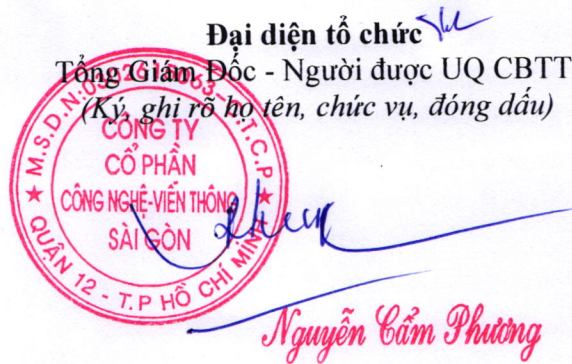 Đại diện tổ chức
Tổng Giám Đốc - Người được UQ CBTT
(Ký, ghi rõ họ tên, chức vụ, đóng dấu)
CÔNG TY
CỔ PHẦN
CÔNG NGHỆ-VIỄN THÔNG
SÀI GÒN
QUẬN 12 - T.P HỒ CHÍ MINH
Nguyễn Cẩm Phương